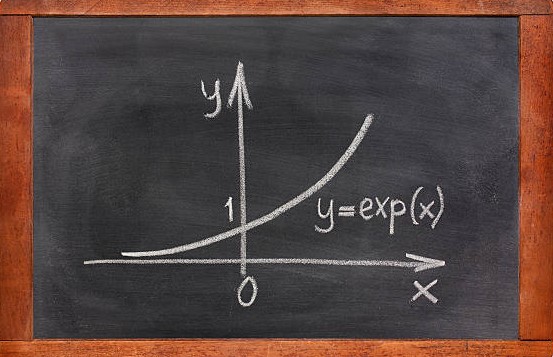 y
1
y=exp(x)
0
x